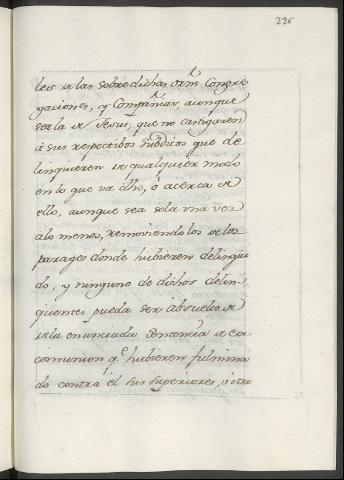 226
les de las sobre dichas Orns Congre
gaciones, y Compañias, aunque
sea la de Jesus, que no castigaren
à sus respectibos subditos que de
linquieren de qualquier modo
en lo que va dho, ò acerca de
ello, aunque sea sola una vez
álo menos, removiendolos de los
parages donde hubieren delinqui
do, y ninguno de dichos delin
quentes pueda ser absuelto de
dela enunciada Sentencia de ex
comunion qe. hubieren fulmina
do contra él sus Superiores, ù otro